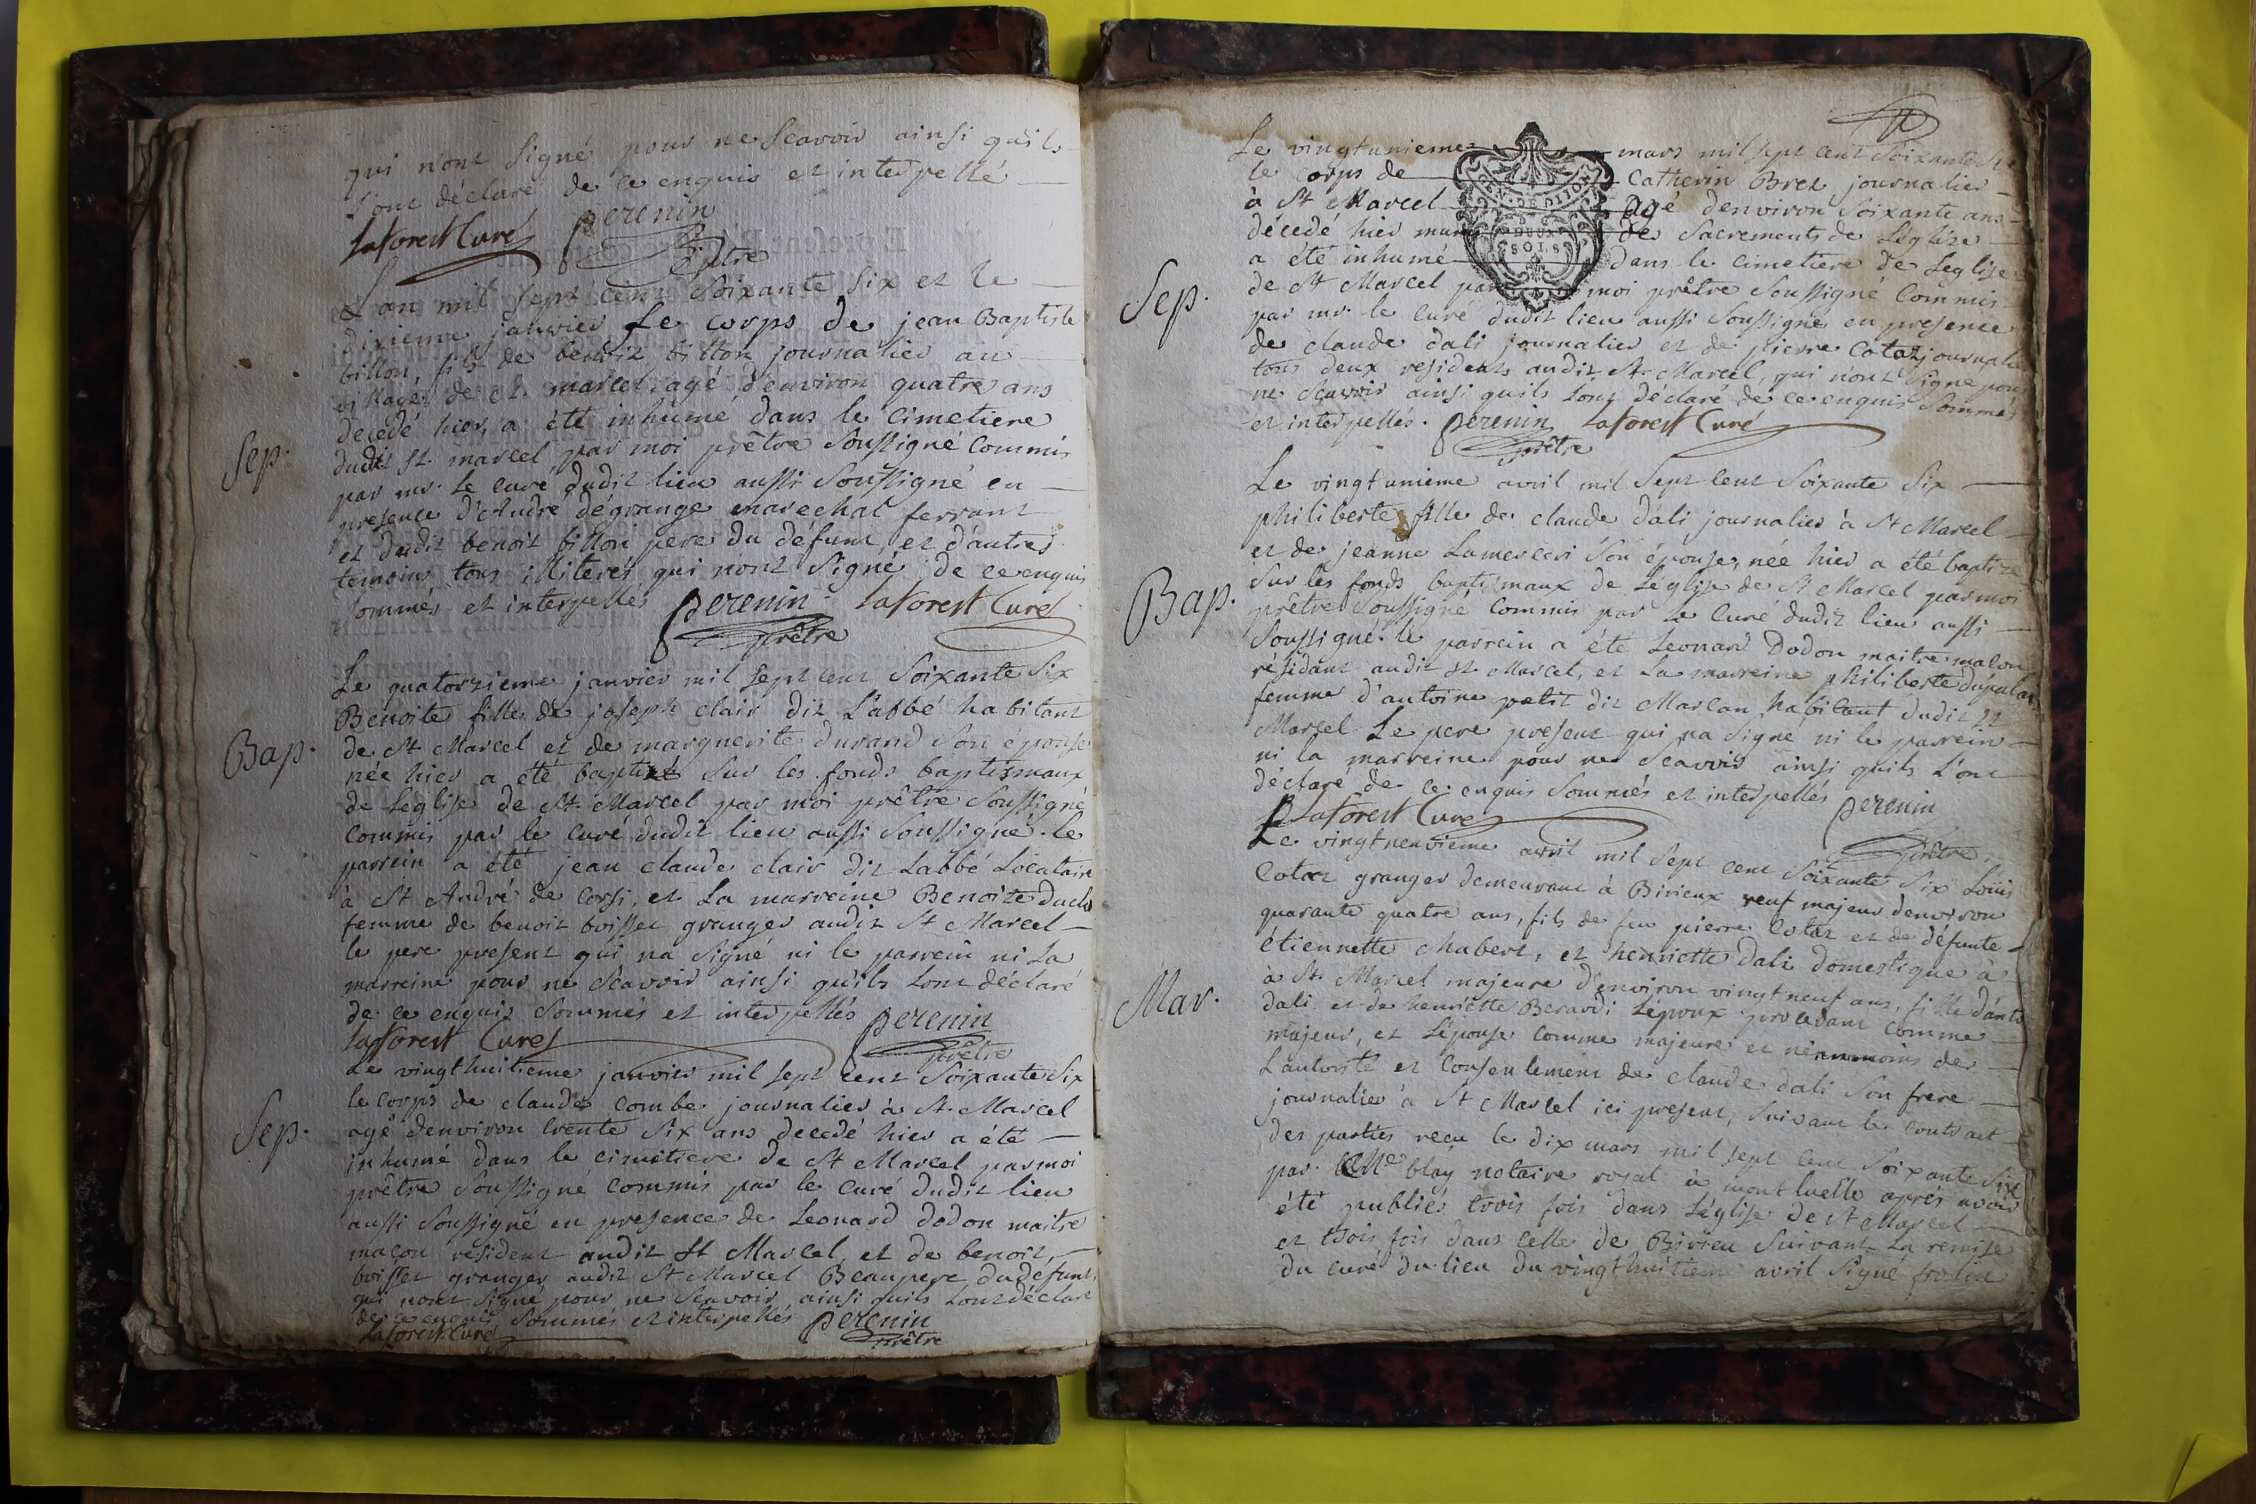 qui n'ont signé pour ne scavoir ainsi quils
l'ont déclaré de ce enquis et interpellé
Laforest Curé perenin
prêtre
L'an mil sept cent soixante six et le
dixieme janvier le corps de jean Baptiste
billon, fils de benoit billon journalier au
village de st. marcel agé d'environ quatre ans
decedé hier, a été inhumé dans le cimetiere
Sep.
dudit st. marcel par moi prêtre soussigné commis
par mr. le curé dudit lieu aussi soussigné en
presence d'Andre dégrange marechal ferrant
et dudit benoit billon pere du défunt, et d'autres
temoins tous illiterés qui nont signé de ce enquis
sommés et interpellés perenin Laforest Curé
prêtre
Le quatorzieme janvier mil sept cent soixante six
Benoite fille de joseph clair dit L'abbé habitant
Bap.
de St Marcel et de marguerite durand son épouse
née hier a été baptisé sur les fonds baptismaux
de Léglise de St. Marcel par moi prêtre soussigné
commis par le curé dudit lieu aussi soussigné. le
parrein a été jean claude clair dit Labbé Locataire
à St André de Corsi, et La marreine Benoite duclo
femme de benoit boisset granger audit St Marcel
le pere present qui na signé ni le parrein ni La
marreine pour ne scavoir ainsi quils l'ont déclaré
de ce enquis sommés et interpellés perenin
Laforest Curé prêtre
Le vingthuitieme janvier mil sept cent soixante six
le corps de claude combe journalier à St. Marcel
Sep.
agé denviron trente six ans decedé hier a été
inhumé dans le cimetiere de St Marcel par moi
prêtre soussigné commis par le curé dudit lieu
aussi soussigné en presence de Leonard dodon maitre
maçon resident audit St Marcel, et de benoit
boisset granger audit St Marcel Beaupere du défunt,
qui nont signé pour ne scavoir ainsi quils l'ont déclaré
de ce enquis sommés et interpellés perenin
Laforest Curé prêtre
Le vingtunieme mars mil sept cent soixante six
le corps de Catherin Bret journalier
à St Marcel agé denviron soixante ans
décedé hier muni des Sacrements de Léglise
a été inhumé dans le cimetiere de Leglise
Sep.
de St Marcel par moi prêtre soussigné commis
par mr. le curé dudit lieu aussi soussigné en presence
de claude dali journalier et de pierre Cotaz journalier
tous deux residents audit St. Marcel, qui n'ont signé pour
ne scavoir ainsi quils l'ont déclaré de ce enquis sommés
et interpellés. perenin Laforest Curé
prêtre
Le vingtunieme avril mil sept cent soixante six
philiberte fille de claude dali journalier à St Marcel
et de jeanne Lamerceri son épouse, née hier a été baptisé
Bap.
sur les fonds baptismaux de Léglise de St Marcel par moi
prêtre soussigné commis par le curé dudit lieu aussi
soussigné. le parrein a été Leonard Dodon maitre maçon
residant audit St Marcel, et La marreine philiberte
femme d'antoine petit dit Marlan habitant dudit St
Marcel Le pere present qui na signé ni le parrein
ni la marreine pour ne scavoir ainsi quils l'ont
déclaré de ce enquis sommés et interpellés perenin
Laforest Curé prêtre
Le vingtneuvieme avril mil sept cent soixante six Loüis
Cotaz granger demeurant à Birieux veuf majeur denviron
quarante quatre ans, fils de feu pierre Cotaz et de défunte
étiennette Chabert, et henriette dali domestique à
Mar.
à St. Marcel majeure d'environ vingt neuf ans, fille
dali et de henriette Berardi Lépoux procedant comme
majeur, et Lépouse comme majeure et néanmoins de
L'autorité et consentement de claude dali son frere
journalier à St Marcel ici present, suivant le contract
des parties recu le dix mars mil sept cent soixante six
par Me blay notaire royal à montluelle après avoir
été publiés trois fois dans Léglise de St Marcel
et trois fois dans celle de Birieu suivant La remise
du curé du lieu du vingthuitieme avril signé frolin